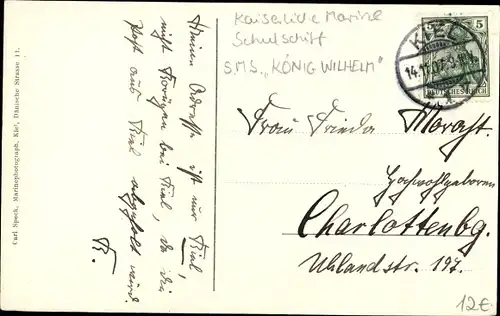 Meine Adresse ist nur Kiel,
nicht Proviyen bei Kiel, da die
Post aus Kiel abgeholt wird.
B.
Carl Speck, Marinephotograph, Kiel, Dänische Strasse 11.
Kaiserliche Marine
Schulschiff
S.M.S. „KÖNIG WILHELM"
5 5
DEUTSCHES REICH
KIEL
14.11.07
Frau Frieda Morast.
Hochwohlgeboren
Charlottenbg.
Uhlandstr. 197.
12€